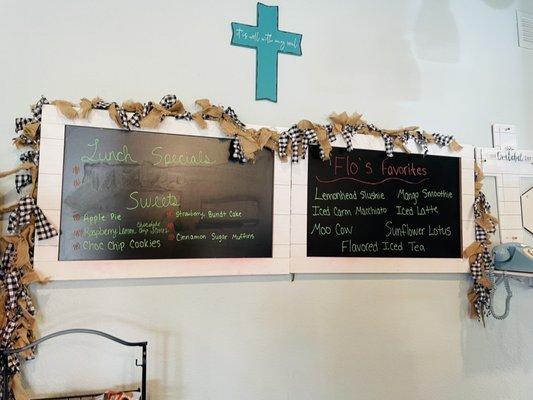 it is well with my soul
Lunch Specials
Sweets
Apple Pie
Strawberry Bundt Cake
Raspberry Lemon
Chocolate Chip Scones
Choc Chip Cookies
Cinnamon Sugar Muffins
Flo's Favorites
Lemonhead Slushie
Mango Smoothie
Iced Carm Macchiato
Iced Latte
Moo Cow
Sunflower Lotus
Flavored Iced Tea